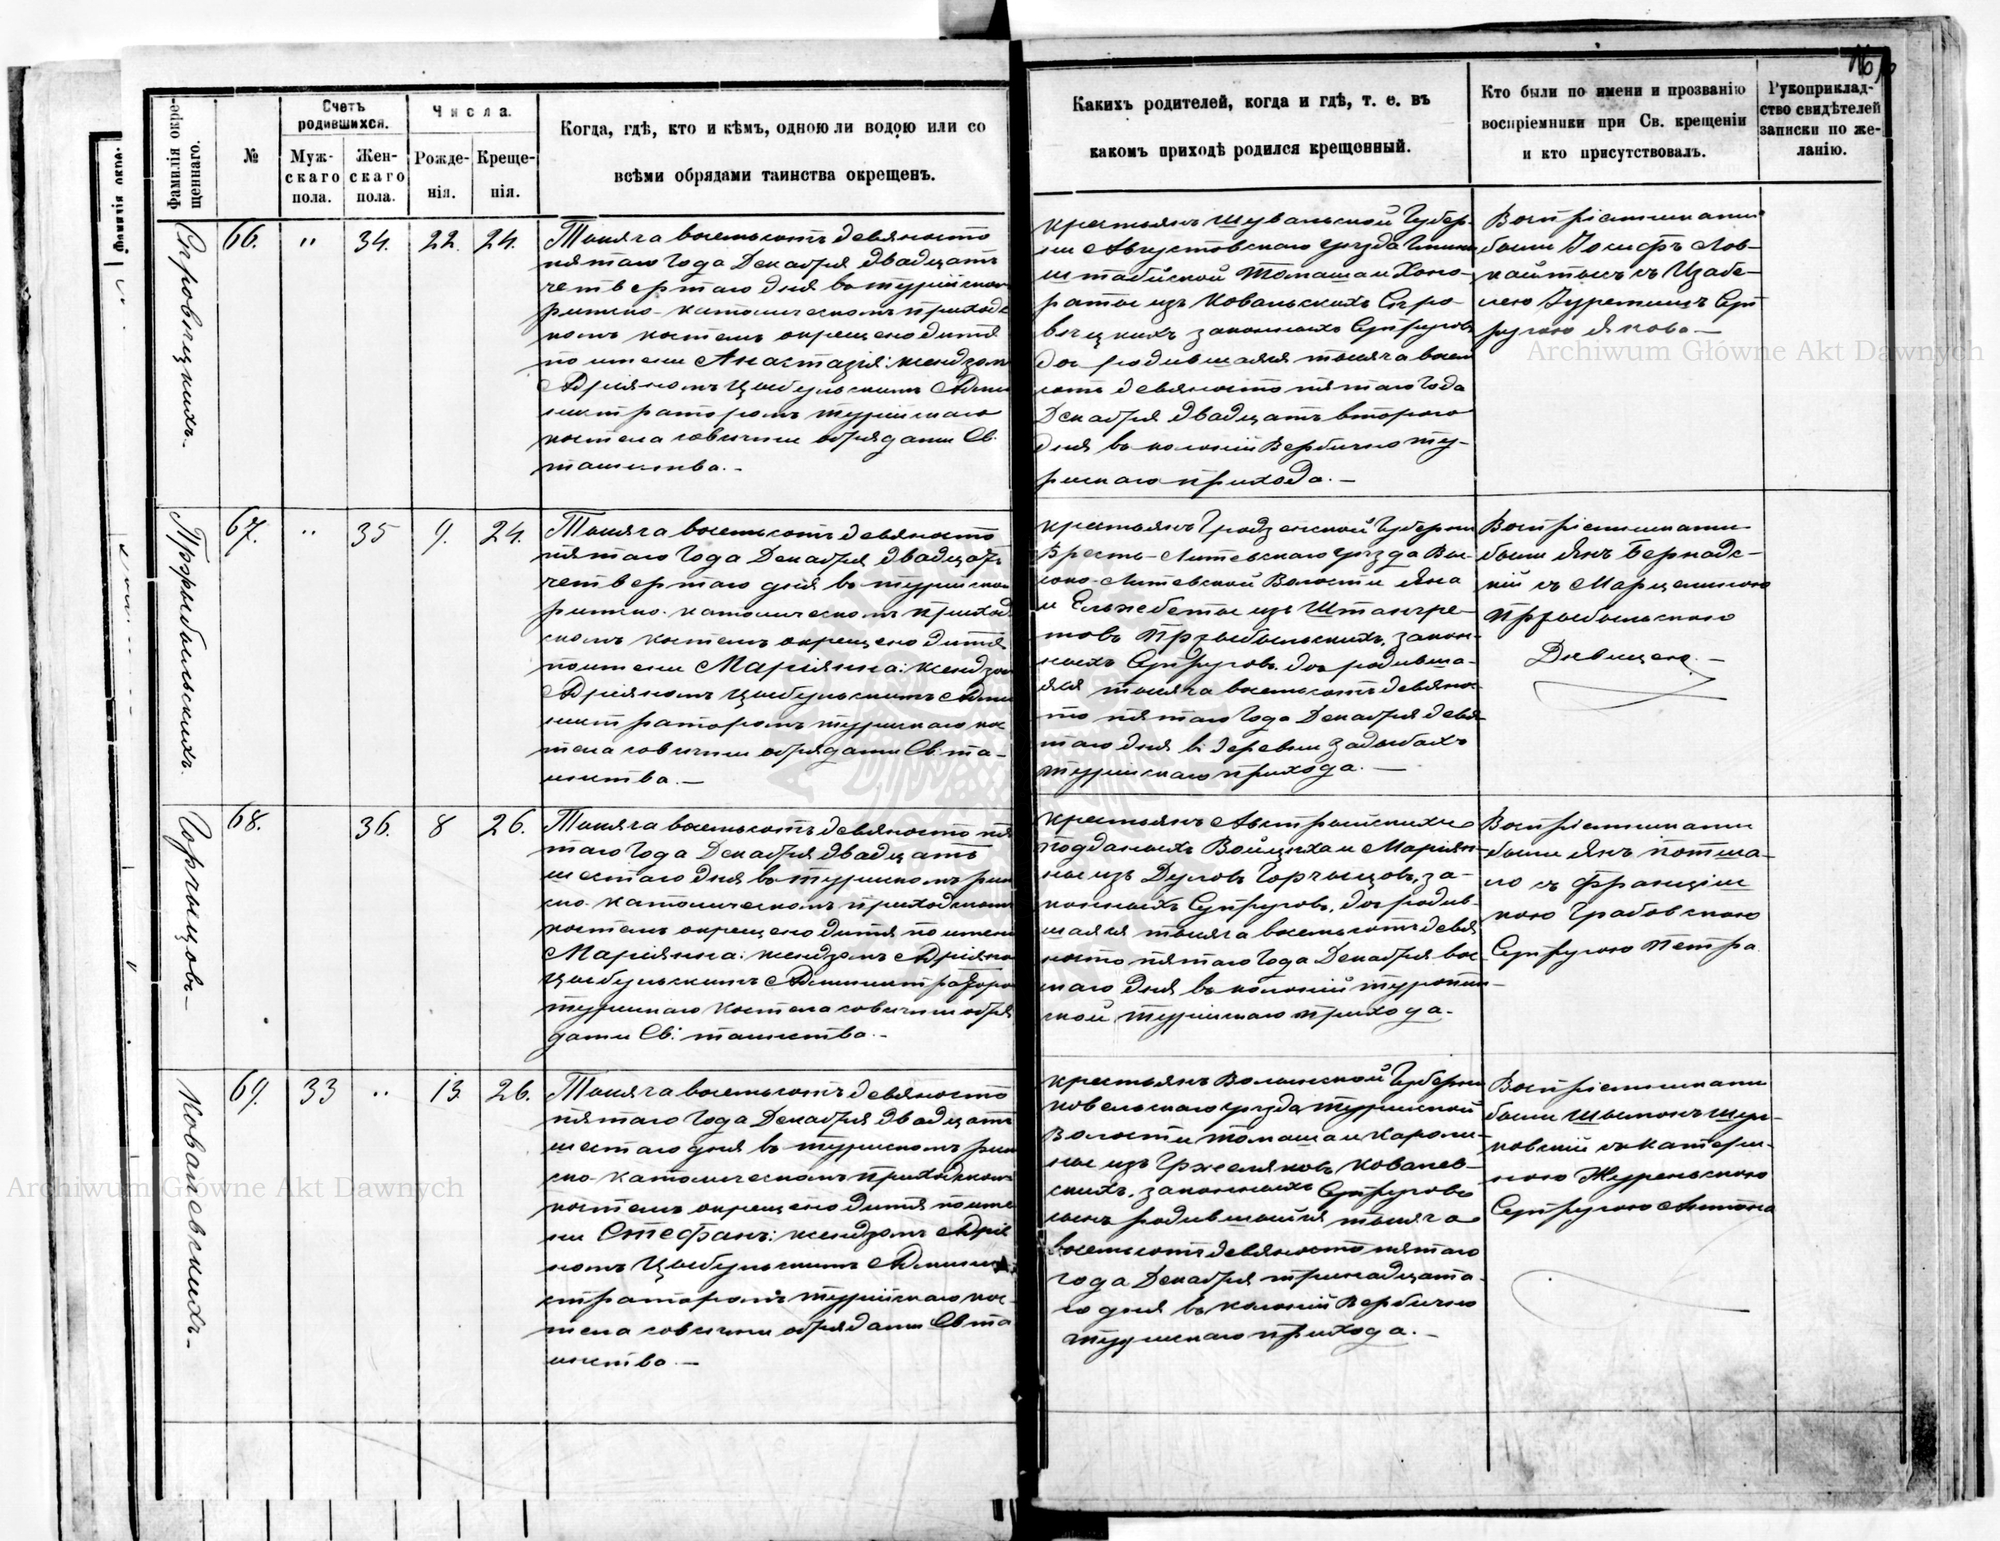 Фамилія окрещеннаго.
№
Счетъ родившихся.
Мужскаго пола.
Женскаго пола.
Числа.
Рожденія.
Крещенія.
Когда, гдѣ, кто и кѣмъ, одною ли водою или со
всѣми обрядами таинства окрещенъ.
Какихъ родителей, когда и гдѣ, т. е. въ
какомъ приходѣ родился крещенный.
Кто были по имени и прозванію
воспріемники при Св. крещеніи
и кто присутствовалъ.
Рукоприклад-
ство свидѣтелей
записки по же-
ланію.
66. " 34. 22. 24.
Тысяча восемьсотъ девяносто
пятаго Года Декабря двадцать
четвертаго дня въ турійскомъ
римско-католическомъ приход-
скомъ костелѣ окрещено дитя
по имени Анастазія: ксендзомъ
Адріяномъ Цыбульскимъ Адми
нистраторомъ турійскаго
костела со всѣми обрядами Св.
таинства.-
крестьянъ Сувальской Губер-
ніи Августовскаго уѣзда Гмины
штабинской Томаша и Хоно-
раты изъ Ковальскихъ
законныхъ Супруговъ
дочь родившаяся тысяча восем
сотъ девяносто пятаго Года
Декабря двадцать второго
дня въ колоніи Вербично ту-
рійскаго прихода.-
Воспріемниками
были Іосифъ
съ Изабе-
лею Супругою Якова-
Пржыбыльскихъ.
67. " 35 9. 24.
Тысяча восемьсотъ девяносто
пятаго Года Декабря двадцать
четвертаго дня въ турійскомъ
римско-католическомъ приход
скомъ костелѣ окрещено дитя
по имени Маріянна: ксендзом
Адріяномъ Цыбульскимъ Адми
нистраторомъ турійскаго кос
тела со всѣми обрядами Св. та-
инства.-
крестьянъ Гродненской Губерніи
Брестъ-Литевскаго уѣзда Высоко-Литевской Волости Яна
и Ельжбеты изъ
Пржыбыльскихъ, закон-
ныхъ Супруговъ, дочь родивша-
яся тысяча восемьсотъ девянос-
то пятаго Года Декабря девя-
таго дня въ деревни Задыбахъ
турійскаго прихода.-
Воспріемниками
были Янъ Бернадс-
кій съ Марцелиною
Пржыбыльскою
Дѣвицею.-
68. 36. 8 26.
Тысяча восемьсотъ девяносто пя
таго Года Декабря двадцать
шестаго дня въ турійскомъ рим
ско-католическомъ приходскомъ
костелѣ окрещено дитя по имени
Маріянна: ксендзомъ Адріяно
Цыбульскимъ Администраторо
турійскаго Костела со всѣми обря
дами Св: таинства.-
крестьянъ Австрійскихъ
подданыхъ Войцѣха и Маріян-
ны изъ за-
конныхъ Супруговъ, дочь родив-
шаяся тысяча восемьсотъ девя
носто пятаго Года Декабря вос-
маго дня въ колоніи
турійскаго прихода.
Воспріемниками
были Янъ
съ Францiш
кою Грабовскою
Супругою Петра
Ковалевскихъ-
69. 33 " 13. 26.
Тысяча восемьсотъ девяносто
пятаго Года Декабря двадцать
шестаго дня въ турійскомъ рим
ско-католическомъ приходском
костелѣ окрещено дитя по име
ни Стефанъ: ксендзомъ Адрія
номъ Цыбульскимъ Админи
страторомъ турійскаго кос-
тела со всѣми обрядами Св та
инства.-
крестьянъ Волынской Губерніи
Ковельскаго уѣзда турійской
Волости Томаша и Кароли-
ны изъ Гржеляковъ Ковалев-
скихъ, законныхъ Супруговъ
сынъ родившійся тысяча
восемьсотъ девяносто пятаго
года Декабря тринадцата-
го дня въ колоніи Вербично
турійскаго прихода.-
Воспріемниками
были Шымонъ
съ Катери-
ною
Супругою Антона
Archiwum Główne Akt Dawnych
Archiwum Główne Akt Dawnych